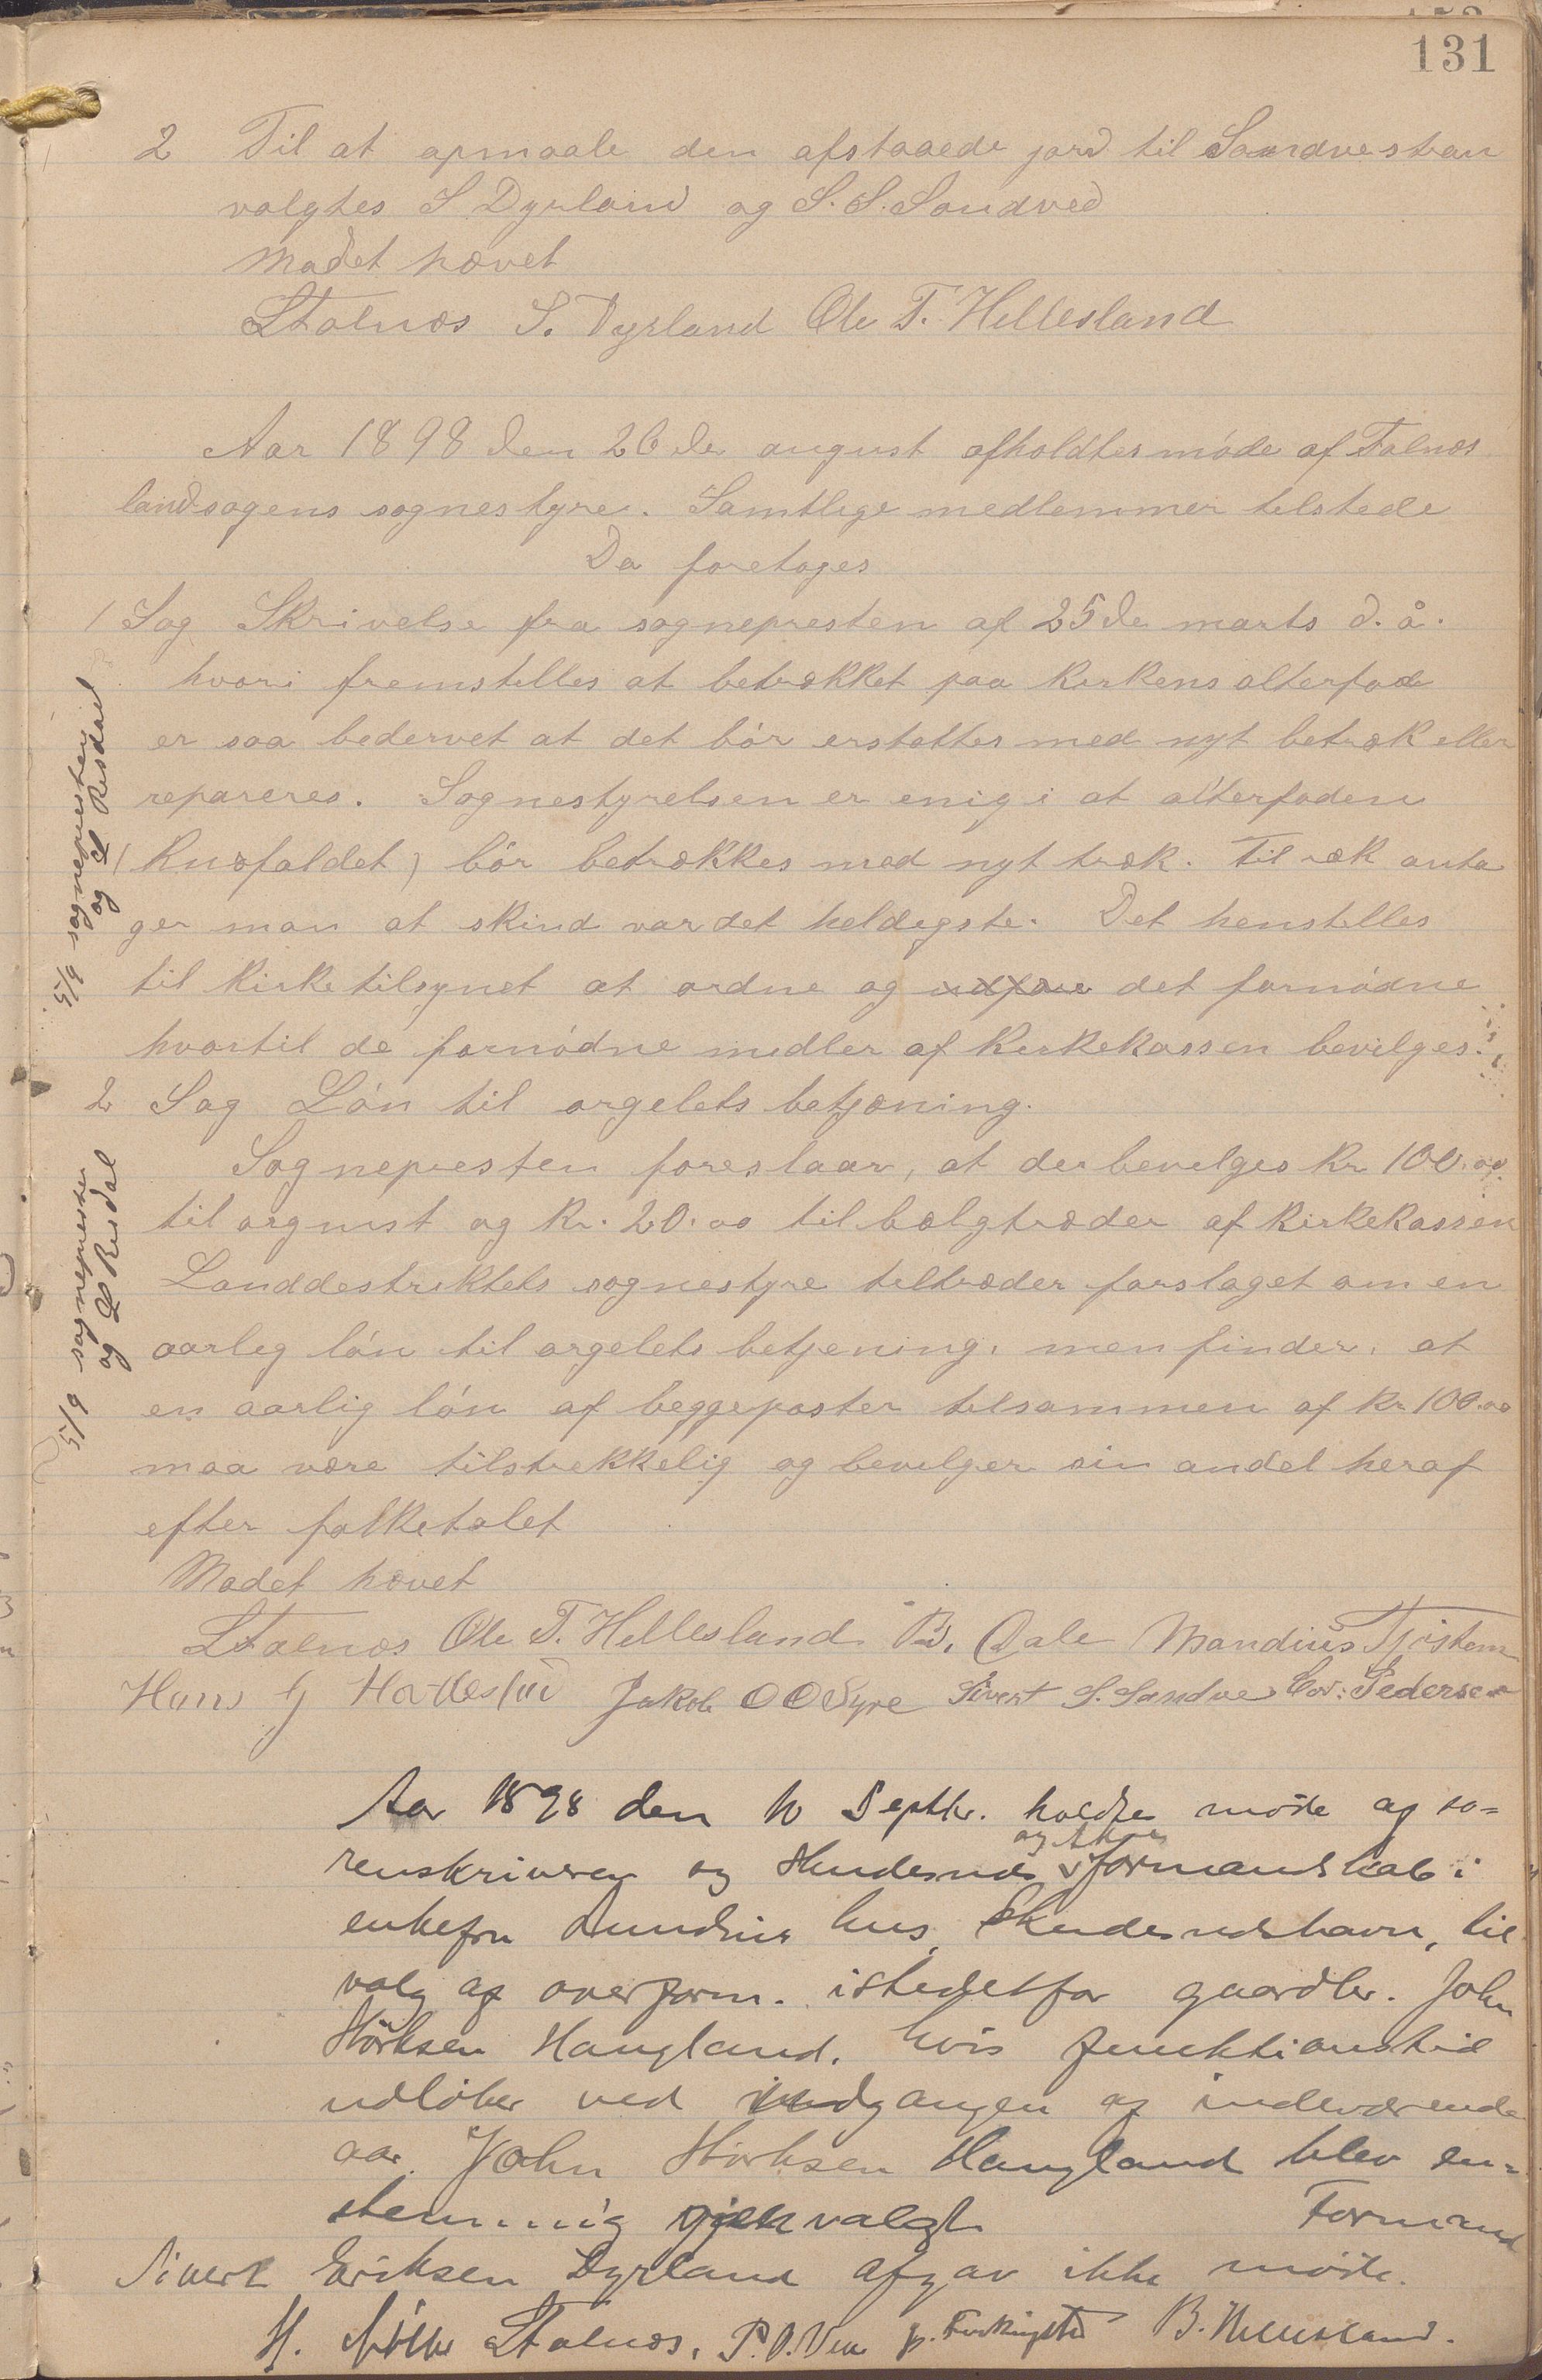 131
2 Til at opmaale den afstaaede jord til Sandvestran
valgtes S Dyrland og S. S. Sandved
Mødet hævet
L Falnæs S. Dyrland Ole T. Hillesland
Aar 1898 den 26de august afholdtes møde af Falnæs
landsogens sognestyre. Samtlige medlemmer tilstede
Da foretoges
1 Sag Skrivelse fra sognepresten af 25de marts d. å.
hvori fremstilles at betrækket paa Kirkens alterfod
er saa bedervet at det bór erstattes med nyt betræk eller
repareres. Sognestyrelsen er enig i at alterfoden
(Knæfaldet) bór betrækkes med nyt træk. Til ræk anta
ger man at skind var det heldigste. Det henstilles
til Kirketilsynet at ordne og udføre det fornødne
hvortil de fornødne midler af Kirkekassen bevilges.
5/9 sognepresten
og L Risdal
2 Sag Lón til orgelets betjæning.
Sognepresten foreslaar, at der bevilges Kr 100.00
til orgnist og Kr. 20.00 til bælgtræder af Kirkekassen
Landdestriktets sognestyre tiltræder forslaget om en
aarlig lón til orgelets betjening, men finder, at
en aarlig lón af beggeposter tilsammen af Kr. 100.00
maa være tilstrekkelig og bevilger sin andel heraf
efter folketalet
5/9 sognepresten
og L Risdal
Mødet hævet
L Falnæs Ole T. Hillesland B. Dale Mandius Tjøstem
Hans G Jakob O O Syre Sivert S. Sandve Pedersen
Aar 1898 den 10 Septbr. holdtes møde af so=
renskriveren og Skudesnæs formandskab i
og
enkefru hus, Skudesnæshavn, til
valg af overform. istedetfor gaardbr. John
Haugland, hvis funktionstid
udløber ved udgangen af indeværende
aar. John Haugland blev en=
stemmig gjenvalgt. Formand
Sivert Eriksen Dyrland afgav ikke møde.
H. L Falnæs, P. O. Vea B. Hillesland.